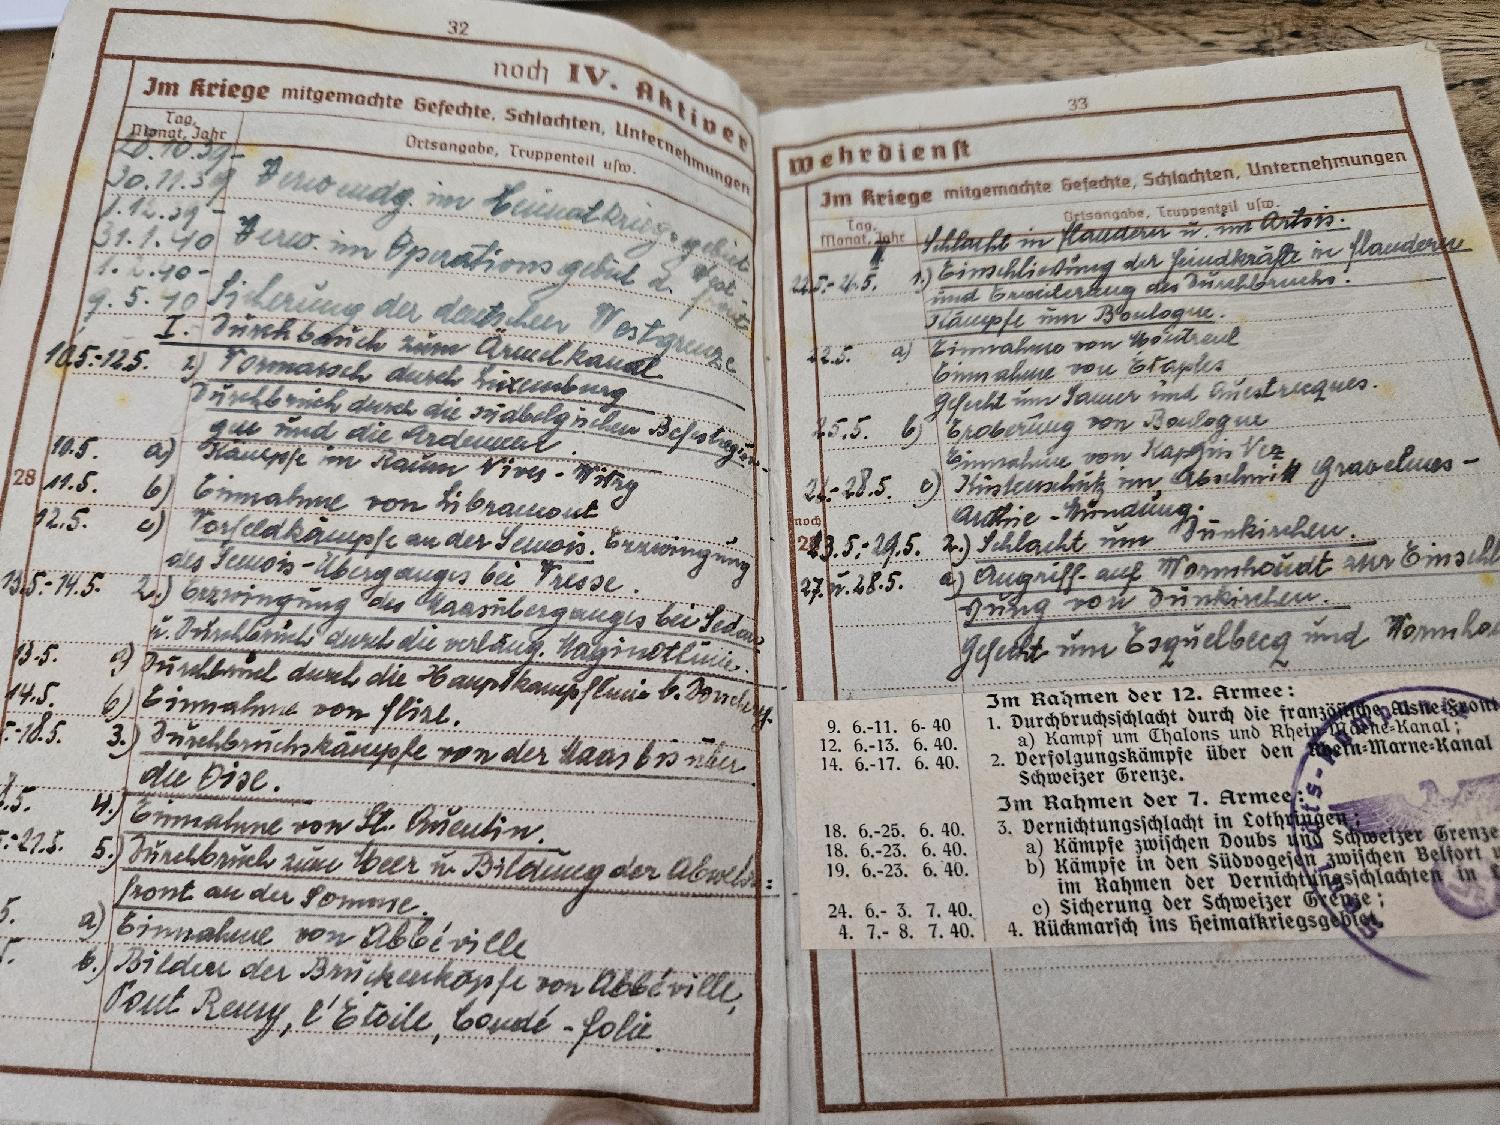 32
noch IV. Aktiver
Im Kriege mitgemachte Gefechte, Schlachten, Unternehmungen
Tag, Monat, Jahr
Ortsangabe, Truppenteil usw.
28.10.39-
30.11.39 Verwendg. im Heimatkriegsgebiet
1.12.39-
31.1.40 Verw. im Operationsgebiet d. Westfront
1.2.40-
9.5.40 Sicherung der deutschen Westgrenze
I. Durchbruch zum Ärmelkanal
10.5.-12.5. 1) Vormarsch durch Luxemburg
Durchbruch durch die südbelgischen Befestigun-
gen und die Ardennen.
10.5. a) Kämpfe im Raum Vives - Witry
28
11.5. b) Einnahme von Libramont
12.5. c) Vorfeldkämpfe an der Semois. Erzwingung
des Semois-Überganges bei Bresse.
13.5-14.5. 2.) Erzwingung des Maasüberganges bei Sedan
u. Durchbruch durch die verläng. Maginotlinie.
13.5. a) Durchbruch durch die Hauptkampflinie b. Donchery.
14.5. b) Einnahme von Flize.
-18.5. 3.) Durchbruchskämpfe von der Maas bis über
die Oise.
8.5. 4.) Einnahme von St. Quentin.
5.) Durchbruch zum Meer u. Bildung der Abwehr-
front an der Somme.
5. a) Einnahme von Abbéville
b.) Bilden der Brückenköpfe von Abbéville,
Pont Remy, l'Étoile, Condé-folie.
33
Wehrdienst
Im Kriege mitgemachte Gefechte, Schlachten, Unternehmungen
Tag, Monat, Jahr
Ortsangabe, Truppenteil usw.
II Schlacht in Flandern u. im Artois.
1) Einschließung der Feindkräfte in Flandern
und Erweiterung des Durchbruchs.
Kämpfe um Boulogne.
22.5. a) Einnahme von Montreul
Einnahme von Etaples
Gefecht um Samer und Questrecques.
25.5. b) Eroberung von Boulogne
Einnahme von Kap Gris Nez
-28.5. c) Küstenschutz im Abschnitt Gravelines -
Authie - Mündung.
noch
28
23.5.-29.5. 2.) Schlacht um Dünkirchen.
27.u.28.5. a) Angriff auf Wormhoudt zur Einschl
ßung von Dünkirchen.
Gefecht um Esquelbecq und Wormho
Im Rahmen der 12. Armee:
9. 6.-11. 6. 40 1. Durchbruchsschlacht durch die französische Aisne-Front
a) Kampf um Chalons und Rhein-Marne-Kanal;
12. 6.-13. 6. 40.
14. 6.-17. 6. 40. 2. Verfolgungskämpfe über den Rhein-Marne-Kanal
Schweizer Grenze.
Im Rahmen der 7. Armee:
18. 6.-25. 6. 40. 3. Vernichtungsschlacht in Lothringen;
18. 6.-23. 6. 40. a) Kämpfe zwischen Doubs und Schweizer Grenze
19. 6.-23. 6. 40. b) Kämpfe in den Südvogesen zwischen Belfort
im Rahmen der Vernichtungsschlachten in
24. 6.- 3. 7. 40. c) Sicherung der Schweizer Grenze;
4. 7.- 8. 7. 40. 4. Rückmarsch ins Heimatkriegsgebiet